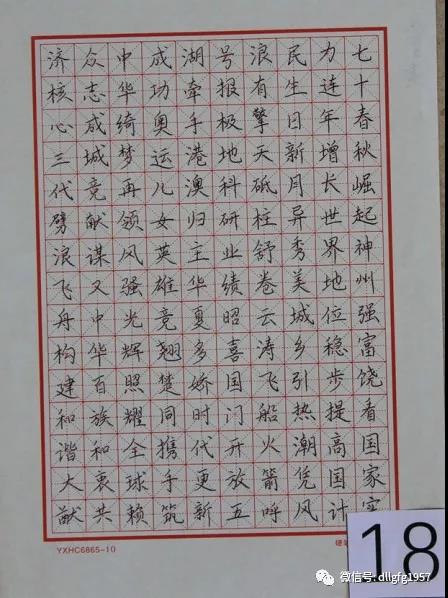 七十春秋崛起神州强富饶看国家实
力连年增长世界地位稳步提高国计
民生日新月异秀美城乡引热潮凭风
浪有擎天砥柱舒卷云涛飞船火箭呼
号报极地科研业绩昭喜国门开放五
湖牵手港澳归主华夏多娇时代更新
成功奥运儿女英雄竞翘楚同携手筑
中华绮梦再领风骚光辉照耀全球赖
众志成城竞献谋又中华百族和衷共
济核心三代劈浪飞舟构建和谐大猷
YXHC6865-10
18
微信号: dllgfg1957